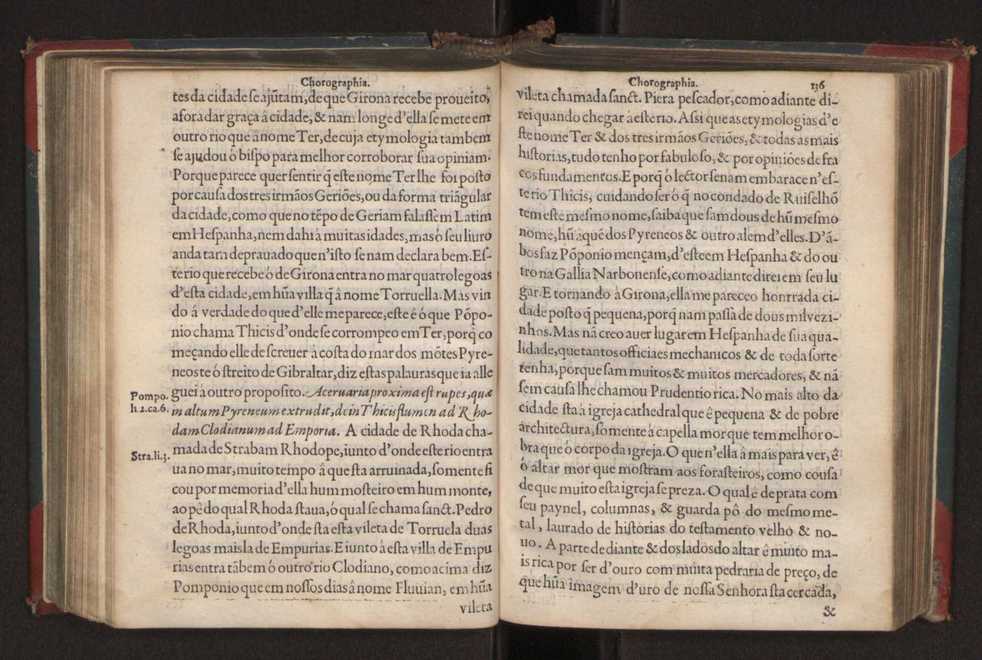 Chorographia.
tes da cidade se ajũtam, de que Girona recebe proueito,
afora dar graça à cidade, & nam longe d'ella se mete em
outro rio que à nome Ter, de cuja etymologia tambem
se ajudou ò bispo para melhor corroborar sua opiniam.
Porque parece quer sentir q̃ este nome Ter lhe foi posto
por causa dos tres irmãos Geriões, ou da forma triãgular
da cidade, como que no tẽpo de Geriam falassẽm Latim
em Hespanha, nem dahi à muitas idades, mas ò seu liuro
anda tam deprauado que n'isto se nam declara bem. Es-
terio que recebe ò de Girona entra no mar quatro legoas
d'esta cidade, em hũa villa q̃ à nome Torruella. Mas vin
do à verdade do que d'elle me parece, este é ò que Põpo-
nio chama Thicis d'onde se corrompeo em Ter, porq̃ co
meçando elle de screuer à costa do mar dos mõtes Pyre-
neos te ò streito de Gibraltar, diz estas palauras que ia alle
Pompo. li 2. ca. 6.
guei à outro proposito. Aceruaria proxima est rupes, quæ
in altum Pyreneum extrudit, dein Thicis flumen ad Rho-
dam Clodianum ad Emporia. A cidade de Rhoda cha-
Stra. li. 3.
mada de Strabam Rhodope, iunto d'onde este rio entra
ua no mar, muito tempo à que sta arruinada, somente fi
cou por memoria d'ella hum mosteiro em hum monte,
ao pê do qual Rhoda staua, ò qual se chama sanct. Pedro
de Rhoda, iunto d'onde sta esta vileta de Torruela duas
legoas mais la de Empurias. E iunto à esta villa de Empu
rias entra tãbem ò outro rio Clodiano, como acima diz
Pomponio que em nossos dias à nome Fluuian, em hũa
vileta
Chorographia. 136
vileta chamada sanct. Piera pescador, como adiante di-
rei quando chegar a esterio. Assi que as etymologias d'e
ste nome Ter & dos tres irmãos Geriões, & todas as mais
historias, tudo tenho por fabuloso, & por opiniões de fra
cos fundamentos. E porq̃ ò lector se nam embarace n'es-
te rio Thicis, cuidando ser ò q̃ no condado de Ruiselhõ
tem este mesmo nome, saiba que sam dous de hũ mesmo
nome, hũ aquẽ dos Pyreneos & outro alem d'elles. D'ã-
bos faz Põponio mençam, d'este em Hespanha & do ou
tro na Gallia Narbonense, como adiante direi em seu lu
gar. E tornando à Girona, ella me pareceo honrrada ci-
dade posto q̃ pequena, porq̃ nam passa de dous mil vezi-
nhos. Mas nã creo auer lugar em Hespanha de sua qua-
lidade, que tantos officiaes mechanicos & de toda sorte
tenha, porque sam muitos & muitos mercadores, & nã
sem causa lhe chamou Prudentio rica. No mais alto da
cidade sta à igreja cathedral que é pequena & de pobre
architectura, somente à capella mor que tem melhor o-
bra que ò corpo da igreja. O que n'ella à mais para ver, é
ò altar mor que mostram aos forasteiros, como cousa
de que muito esta igreja se preza. O qual é de prata com
seu paynel, columnas, & guarda pô do mesmo me-
tal, laurado de historias do testamento velho & no-
uo. A parte de diante & dos lados do altar é muito ma-
is rica por ser d'ouro com muita pedraria de preço, de
que hũa imagem d'uro de nossa Senhora sta cercada,
&